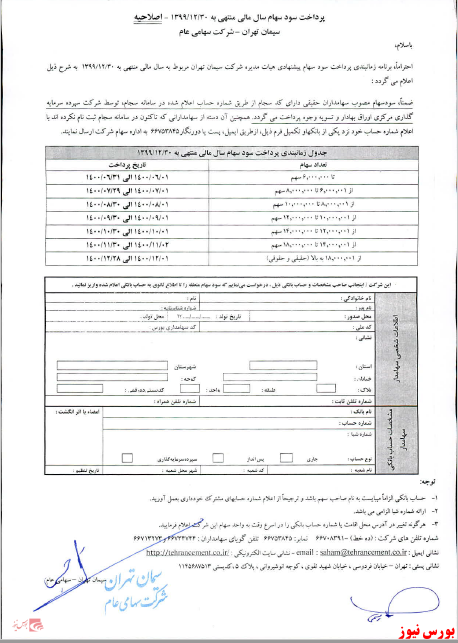 پرداخت سود سهام سال مالی منتهی به ۱۳۹۹/۱۲/۳۰ - اصلاحیه
سیمان تهران – شرکت سهامی عام
باسلام،
احتراماً، برنامه زمانبندی پرداخت سود سهام پیشنهادی هیات مدیره شرکت سیمان تهران مربوط به سال مالی منتهی به ۱۳۹۹/۱۲/۳۰ به شرح ذیل
اعلام می گردد :
ضمناً، سودسهام مصوب سهامداران حقیقی دارای کد سجام از طریق شماره حساب اعلام شده در سامانه سجام، توسط شرکت سپرده سرمایه
گذاری مرکزی اوراق بهادار و تسویه وجوه پرداخت می گردد. همچنین آن دسته از سهامدارانی که تاکنون در سامانه سجام ثبت نام نکرده اند با
اعلام شماره حساب خود نزد یکی از بانکها و تکمیل فرم ذیل، ازطریق ایمیل، پست یا دورنگار ۶۶۷۵۳۸۴۵ به اداره سهام شرکت ارسال نمایند.
جدول زمانبندی پرداخت سود سهام سال مالی منتهی به ۱۳۹۹/۱۲/۳۰
تعداد سهام تاریخ پرداخت
تا ۶,۰۰۰,۰۰۰ سهم ۱٤۰۰/۰٦/۰۱ الی ۱٤۰۰/۰٦/۳۱
از ۶,۰۰۰,۰۰۱ تا ۸,۰۰۰,۰۰۰ سهم ۱٤۰۰/۰۷/۰۱ الی ۱٤۰۰/۰۷/۲۹
از ۸,۰۰۰,۰۰۱ تا ۱۰,۰۰۰,۰۰۰ سهم ۱٤۰۰/۰۸/۰۱ الی ۱٤۰۰/۰۸/۳۰
از ۱۰,۰۰۰,۰۰۱ تا ۱۲,۰۰۰,۰۰۰ سهم ۱٤۰۰/۰۹/۰۱ الی ۱٤۰۰/۰۹/۳۰
از ۱۲,۰۰۰,۰۰۱ تا ۱۴,۰۰۰,۰۰۰ سهم ۱٤۰۰/۱۰/۰۱ الی ۱٤۰۰/۱۰/۳۰
از ۱۴,۰۰۰,۰۰۱ تا ۱۸,۰۰۰,۰۰۰ سهم ۱٤۰۰/۱۱/۰۲ الی ۱٤۰۰/۱۱/۳۰
از ۱۸,۰۰۰,۰۰۱ به بالا (حقیقی و حقوقی) ۱٤۰۰/۱۲/۰۱ الی ۱٤۰۰/۱۲/۲۸
این شرکت / اینجانب صاحب مشخصات و حساب بانکی ذیل، درخواست می‌نمایم که سود سهام متعلقه را تا اطلاع ثانوی به حساب بانکی اعلام شده واریز نمائید.
اطلاعات شخصی سهامدار
نام خانوادگی : نام :
نام پدر : شماره شناسنامه :
محل صدور : تاریخ تولد : محل تولد :
کد ملی : کد سهامداری بورس
نشانی :
استان : شهرستان
خیابان : کوچه :
پلاک : طبقه : واحد : کدپستی ده رقمی :
شماره تلفن ثابت : شماره تلفن همراه :
مشخصات حساب بانکی سهامدار
نام بانک : امضاء یا اثر انگشت :
شماره حساب :
شماره شبا :
نوع حساب : جاری پس انداز سپرده سرمایه‌گذاری
نام شعبه : کد شعبه : شهر محل شعبه : تاریخ تنظیم :
توجه:
۱- حساب بانکی الزاماً میبایست به نام صاحب سهم باشد و ترجیحاً از اعلام شماره حسابهای مشترک خودداری بعمل آورید.
۲- ارائه شماره شبا الزامی می باشد.
۳- هرگونه تغییر در آدرس محل اقامت یا شماره حساب بانکی را در اسرع وقت به واحد سهام این شرکت اعلام فرمایید.
شماره تلفن های شرکت : (ده خط) ۶۶۷۰۸۳۹۱- نمابر: ۶۶۷۵۳۸۴۵ تلفن گویای سهامداران : ۶۶۷۳۴۷۲۴ و ۶۶۷۱۳۲۷۳
نشانی ایمیل : email : saham@tehrancement.co.ir – نشانی سایت الکترونیکی : http://tehrancement.co.ir/
نشانی پستی : تهران – خیابان فردوسی ، خیابان شهید تقوی ، کوچه انوشیروانی ، پلاک ۵، کدپستی ۱۱۴۵۶۸۷۵۱۳
سیمان تهران – سهامی عام)
سیمان تهران
شرکت سهامی عام
بورس نیوز